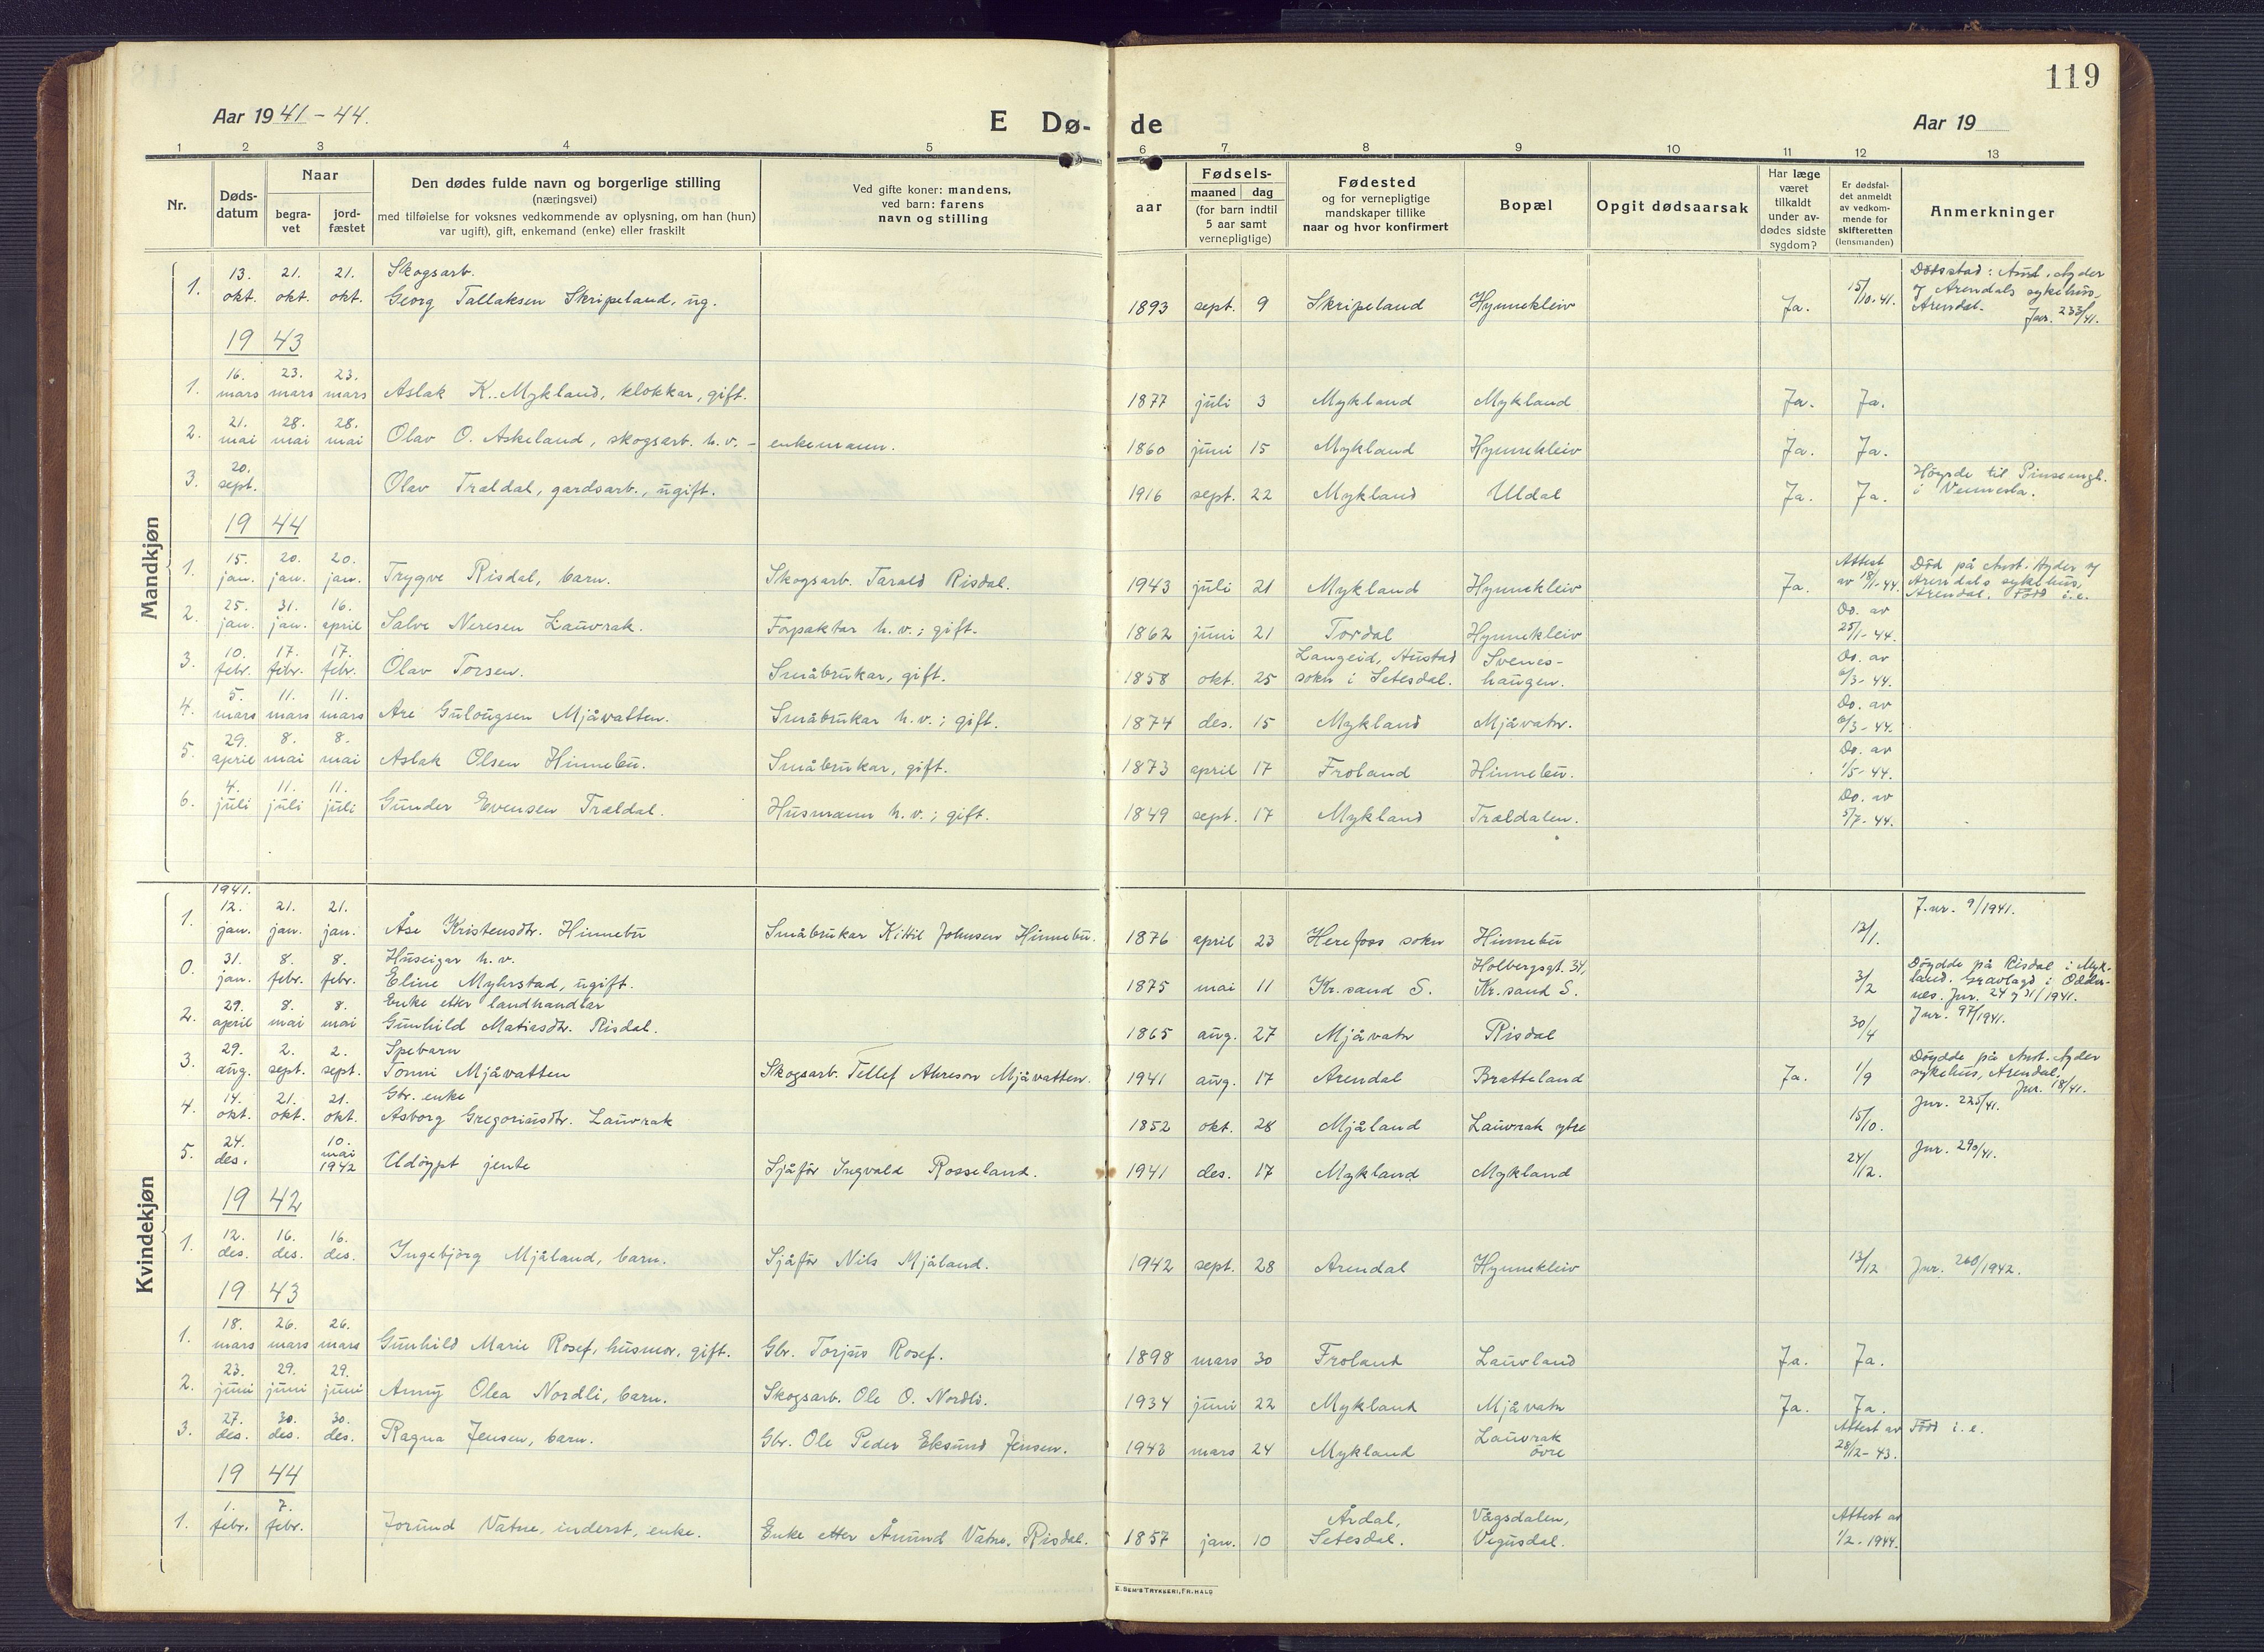 119
Aar 1941-44.
E Dø-
de
Aar 19
1 2 3 4 5 6 7 8 9 10 11 12 13
Nr.
Døds-
datum
Naar
begra-
vet
jord-
fæstet
Den dødes fulde navn og borgerlige stilling
(næringsvei)
med tilføielse for voksnes vedkommende av oplysning, om han (hun)
var ugift), gift, enkemand (enke) eller fraskilt
Ved gifte koner: mandens,
ved barn: farens
navn og stilling
aar
Fødsels-
maaned dag
(for barn indtil
5 aar samt
vernepligtige)
Fødested
og for vernepligtige
mandskaper tillike
naar og hvor konfirmert
Bopæl
Opgit dødsaarsak
Har læge
været
tilkaldt
under av-
dødes sidste
sygdom?
Er dødsfal-
det anmeldt
av vedkom-
mende for
skifteretten
(lensmanden)
Anmerkninger
Mandkjøn
13. 21. 21. Skogsarb. Dødsstad: Aust-Agder
1. okt. okt. okt. Georg Tallaksen Skripeland, ug. 1893 sept. 9 Skripeland Hynnekleiv Ja. 15/10-41. og Arendals sykehus,
Arendal. Jnr. 233/41.
19 43
16. 23. 23.
1. mars mars mars Aslak K. Mykland, klokkar, gift. 1877 juli 3 Mykland Mykland Ja. Ja.
21. 28. 28.
2. mai mai mai Olav O. Askeland, skogsarb. h.v. - enkemann. 1860 juni 15 Mykland Hynnekleiv Ja. Ja.
20. Høyrde til Pinsemgh.
3. sept. Olav Træeldal, gardsarb., ugift. 1916 sept. 22 Mykland Uldal Ja. Ja. i Vennesla.
19 44
15. 20. 20. Attest Død på Aust-Agder og
1. jan. jan. jan. Trygve Risdal, barn. Skogsarb. Tarald Risdal. 1943 juli 21 Mykland Hynnekleiv Ja. av 18/1-44. Arendals sykehus,
Arendal. Fødd i.e.
25. 31. 16. Do. av
2. jan. jan. april Salve Neresen Lauvrak. Forpaktar h.v.; gift. 1862 juni 21 Tordal Hynnekleiv 25/1-44.
10. 17. 17. Langeid, Austad Svenes- Do. av
3. febr. febr. febr. Olav Torsen. Småbrukar, gift. 1858 okt. 25 sokn i Setesdal. haugen. 6/3-44.
5. 11. 11. Do. av
4. mars mars mars Are Gulougsen Mjåvatten. Småbrukar h.v.; gift. 1874 des. 15 Mykland Mjåvatn. 6/3-44.
29. 8. 8. Do. av
5. april mai mai Aslak Olsen Hinnebu. Småbrukar, gift. 1873 april 17 Froland Hinnebu. 1/5-44.
4. 11. 11. Do. av
6. juli juli juli Gunder Evensen Trældal. Husmann h.v.; gift. 1849 sept. 17 Mykland Trældalen. 5/7-44.
Kvindekjøn
1941.
12. 21. 21. J.nr. 9/1941.
1. jan. jan. jan. Åse Kristensdtr. Hinnebu Småbrukar Kittil Johnsen Hinnebu. 1876 april 23 Herefoss sokn Hinnebu 13/1.
31. 8. 8. Huseigar h.v. Holbergsgt. 34, Døydde på Risdal i Myk-
0. jan. febr. febr. Eline Myhrstad, ugift. 1875 mai 11 Kr.sand S. Kr.sand S. 3/2 land. Gravlagd i Odder-
nes. Jnr. 24 og 31/1941.
29. 8. 8. Enke etter landhandlar Jnr. 97/1941.
2. april mai mai Gunhild Matiasdtr. Risdal. 1865 aug. 27 Mjåvatn Risdal 30/4
29. 2. 2. Spebarn Døydde på Aust-Agder
3. aug. sept. sept. Tonni Mjåvatten Skogsarb. Tellef Ahreson Mjåvatten. 1941 aug. 17 Arendal Bratteland Ja. 1/9 sykehus, Arendal.
Jnr. 18/41.
14. 21. 21. Gbr. enke Jnr. 225/41.
4. okt. okt. okt. Asborg Gregoriusdtr. Lauvrak 1852 okt. 28 Mjåland Lauvrak ytre 15/10.
24. 10. Jnr. 290/41.
5. des. mai
1942 Udøypt jente Sjåfør Ingvald Rosseland. 1941 des. 17 Mykland Mykland 24/12.
19 42
12. 16. 16.
1. des. des. des. Ingebjørg Mjåland, barn. Sjåfør Nils Mjåland. 1942 sept. 28 Arendal Hynnekleiv 13/12 Jnr. 260/1942.
19 43
18. 26. 26.
1. mars mars mars Gunhild Marie Rosef, husmor, gift. Gbr. Torjus Rosef. 1898 mars 30 Froland Lauvland Ja. Ja.
23. 29. 29.
2. juni juni juni Anny Olea Nordli, barn. Skogsarb. Ole O. Nordli. 1934 juni 22 Mykland Mjåvatn Ja. Ja.
27. 30. 30. Lauvrak Attest av Fødd i.e.
3. des. des. des. Ragna Jensen, barn. Gbr. Ole Peder Eksund Jensen. 1943 mars 24 Mykland øvre 28/12-43.
19 44
1. 7. Årdal, Vågsdalen, Attest av
1. febr. febr. Jorund Vatne, inderst, enke. Enke etter Åmund Vatne, Risdal. 1857 jan. 10 Setesdal. Vegusdal. 1/2-1944.
E. SEM'S TRYKKERI, FR.HALD